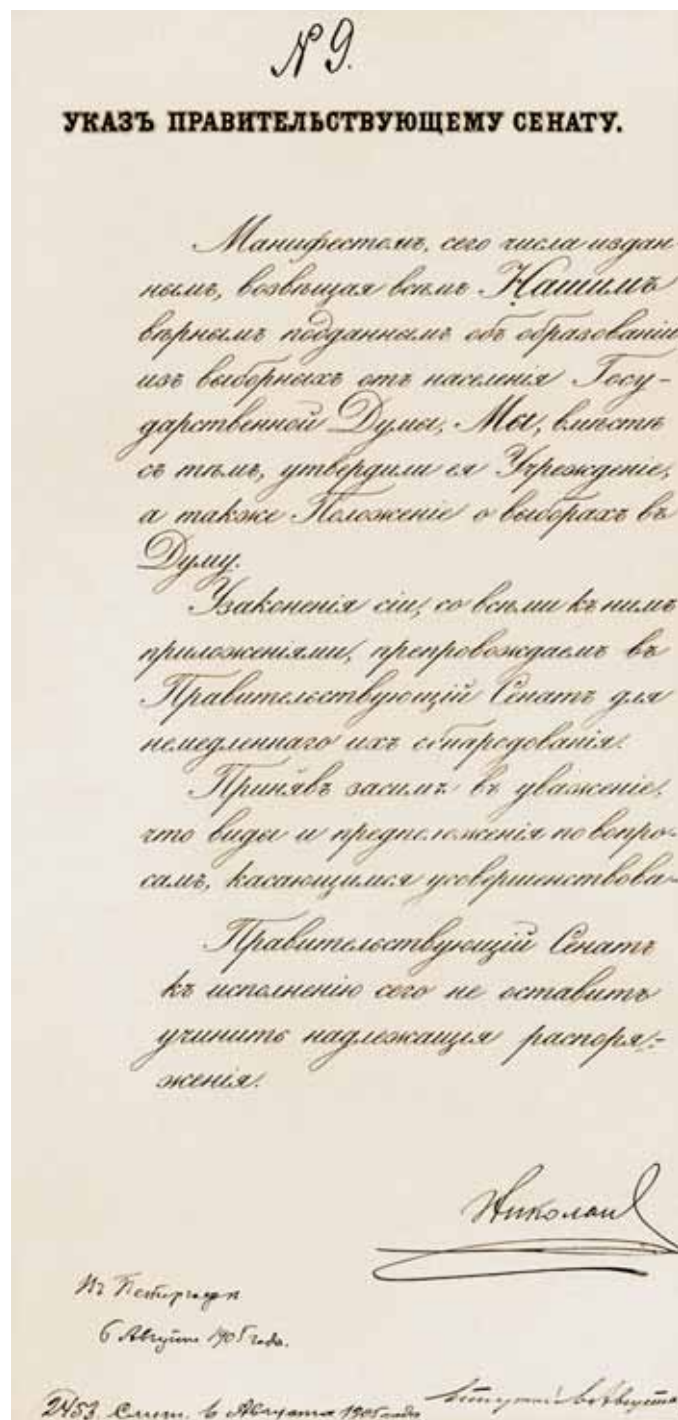 № 9.
УКАЗЪ ПРАВИТЕЛЬСТВУЮЩЕМУ СЕНАТУ.
Манифестомъ, сего числа издан
нымъ, возвѣщая всемъ Нашимъ
вѣрнымъ подданнымъ объ образованіи
изъ выборныхъ отъ населенія Госу-
дарственной Думы, Мы, вмѣстѣ
съ тѣмъ, утвердили ея Учрежденіе,
а также Положеніе о выборахъ въ
Думу.
Узаконенія сіи, со всѣми къ нимъ
приложеніями, препровождаемъ въ
Правительствующій Сенатъ для
немедленнаго ихъ обнародованія.
Принявъ засимъ въ уваженіе,
что виды и предположенія по вопро-
самъ, касающимся усовершенствова-
Правительствующій Сенатъ
къ исполненію сего не оставитъ
учинить надлежащія распоря-
женія.
Николай
Въ Петергофѣ
6 Августа 1905 года.
2453. 6 Августа 1905 года